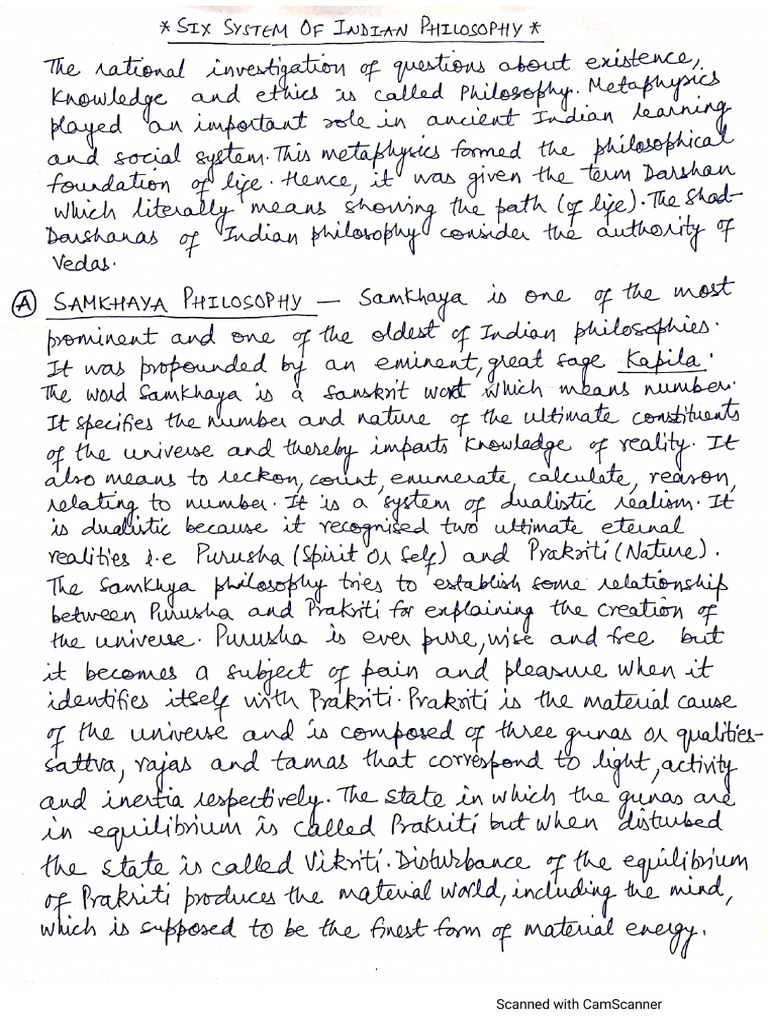 * SIX SYSTEM OF INDIAN PHILOSOPHY *
The rational investigation of questions about existence,
Knowledge and ethics is called Philosophy. Metaphysics
played an important role in ancient Indian learning
and social system. This metaphysics formed the philosophical
foundation of life. Hence, it was given the term Darshan
which literally means showing the path (of life). The Shad-
Darshanas of Indian philosophy consider the authority of
Vedas.
(A) SAMKHAYA PHILOSOPHY — Samkhaya is one of the most
prominent and one of the oldest of Indian philosophies.
It was propounded by an eminent, great sage Kapila.
The word Samkhaya is a sanskrit word which means number.
It specifies the number and nature of the ultimate constituents
of the universe and thereby imparts knowledge of reality. It
also means to reckon, count, enumerate, calculate, reason,
relating to number. It is a system of dualistic realism. It
is dualistic because it recognised two ultimate eternal
realities i.e Purusha (Spirit or Self) and Prakriti (Nature).
The Samkhya philosophy tries to establish some relationship
between Purusha and Prakriti for explaining the creation of
the universe. Purusha is ever pure, wise and free but
it becomes a subject of pain and pleasure when it
identifies itself with Prakriti. Prakriti is the material cause
of the universe and is composed of three gunas or qualities-
sattva, rajas and tamas that correspond to light, activity
and inertia respectively. The state in which the gunas are
in equilibrium is called Prakriti but when disturbed
the state is called Vikriti. Disturbance of the equilibrium
of Prakriti produces the material world, including the mind,
which is supposed to be the finest form of material energy.
Scanned with CamScanner